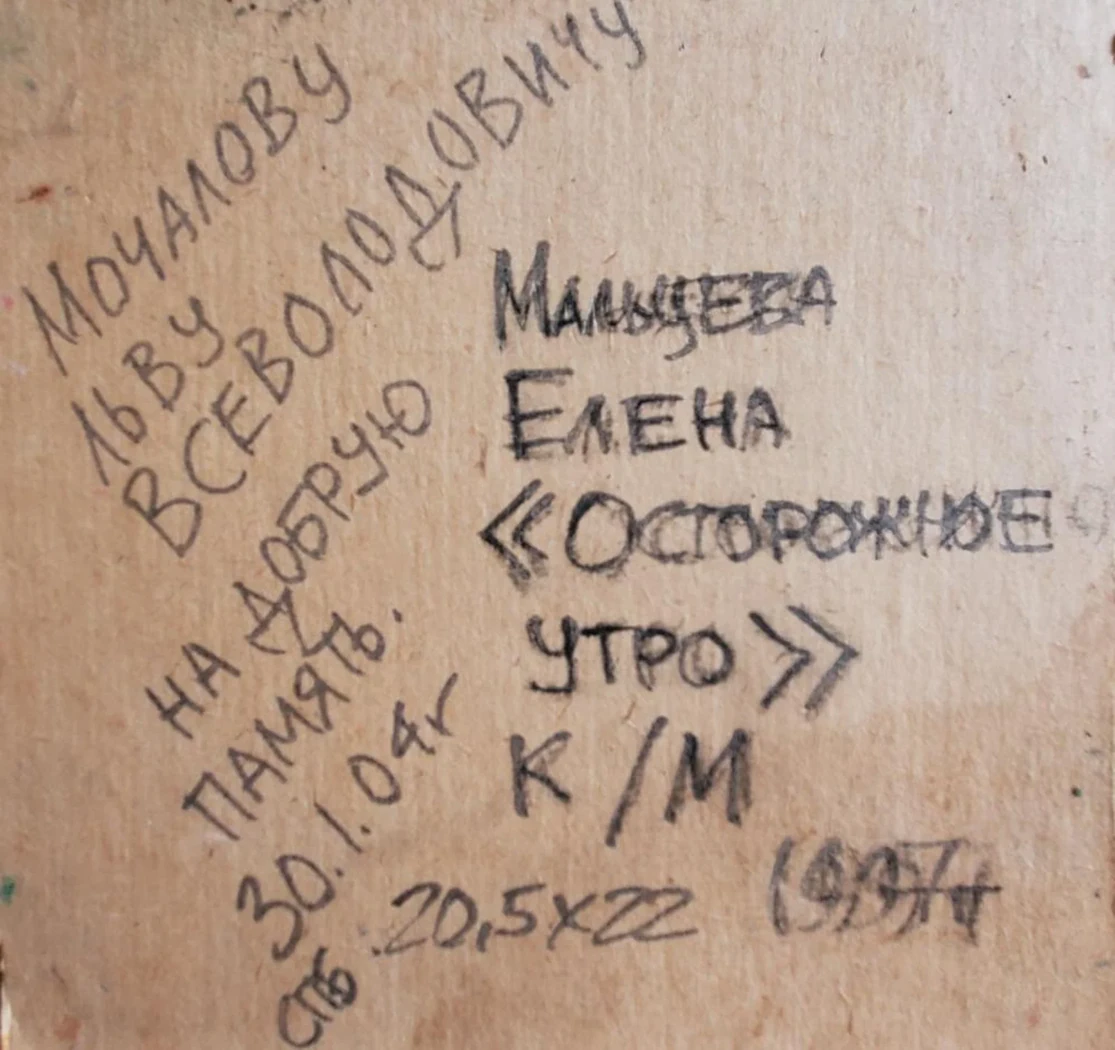 Мочалову
Льву
Всеволодовичу
на добрую
память.
30.1.04г
СПб
Мальцева
Елена
«Осторожное
утро»
К/М
20,5х22